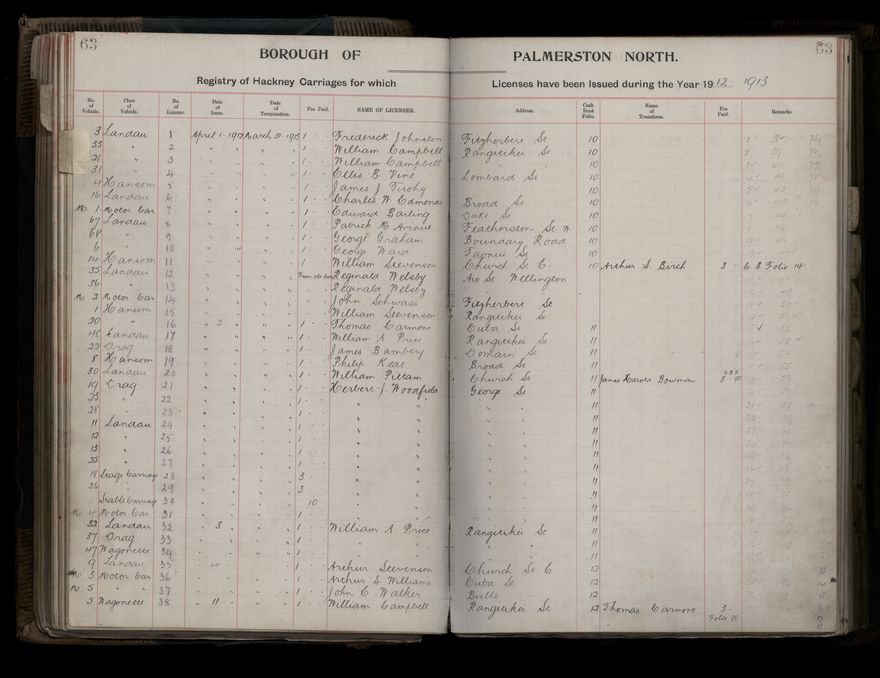 63 63
BOROUGH OF PALMERSTON NORTH.
Registry of Hackney Carriages for which Licenses have been Issued during the Year 1912 - 1913
No. of Vehicle. Class of Vehicle. No. of License. Date of Issue. Date of Termination. Fee Paid. NAME OF LICENSEE. Address. Cash Book Folio. Name of Transferee. Fee Paid. Remarks.
3 Landau 1 April 1-1912 March 31-1913 1 - - Frederick Johnston Fitzherbert St 10
33 " 2 " " " " 1 - - William Campbell Rangitikei St 10
21 " 3 " " " " 1 - - William Campbell " " 10
31 " 4 " " " " 1 - - Elles B. Vine Lombard St 10
4 Hansom 5 " " " " 1 - - James J 10
16 Landau 6 " " " " 1 - - Charles W Edmonds Broad St 10
M 1 Motor Car 7 " " " " 1 - - Edward Barling Duke St 10
67 Landau 8 " " " " 1 - - Patrick Featherston St W 10
68 " 9 " " " " 1 - - George Graham Boundary Road 10
6 " 10 " " " " 1 - - George Ward Taonui St 10
14 Hansom 11 " " " " 1 - - William Stevenson Church St E. 10 Arthur S. Birch 3 - C.B Folio 14
35 Landau 12 " " " " Reginald Welsby Aro St Wellington
36 " 13 " " " " Reginald Welsby
M 2 Motor Car 14 " " " " 1 - - John Schwass Fitzherbert St
1 Hansom 15 " " " " William Stevenson Rangitikei St
20 " 16 " 2 " " 1 - - Thomas Carmont Cuba St 11
48 Landau 17 " " " " 1 - - William A Price Rangitikei St 11
22 Drag 18 " " " " 1 - - James Bambery Domain St 11
8 Hansom 19 " " " " 1 - - Philip Kear Broad St 11
30 Landau 20 " " " " 1 - - William Pittam Church St 11 James Harold Bowman 3 -
19 Drag 21 " " " " 1 - - Herbert J. Woodfield George St 11
23 " 22 " " " " 1 - - " " 11
28 " 23 " " " " 1 - - " " 11
11 Landau 24 " " " " 1 - - " " 11
12 " 25 " " " " 1 - - " " 11
13 " 26 " " " " 1 - - " " 11
25 " 27 " " " " 1 - - " " 11
18 Stage Carriage 28 " " " " 3 " " 11
26 " 29 " " " " 3 " " 11
Stable Carriage 30 " " " " 10 " " 11
M 4 Motor Car 31 " " " " 1 - - " " 11
32 Landau 32 " 3 " " 1 - - William A Price Rangitikei St 11
37 Drag 33 " " " " 1 - - " " 11
47 Wagonette 34 " " " " 1 - - " " 11
9 Landau 35 " " " 1 - - Arthur Stevenson Church St E. 12
M 3 Motor Car 36 " " " " 1 - - Arthur S. Williams Cuba St 12
M 5 " 37 " " " " 1 - - John C Walker Bulls 12
5 Wagonette 38 " 11 " " 1 - - William Campbell Rangitikei St 12 Thomas Carmont 3 -
Folio 18